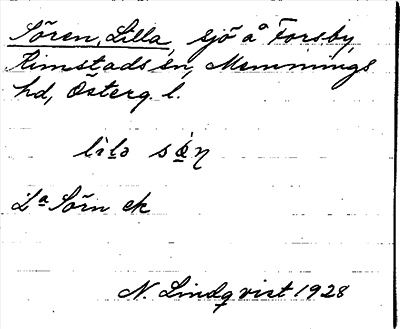 Sören, Lilla, sjö å Forsby,
Kimstads sn, Memmings
hd, Österg. l.
lìlo sǿ̀n
Lª Sörn ek
N. Lindqvist 1928